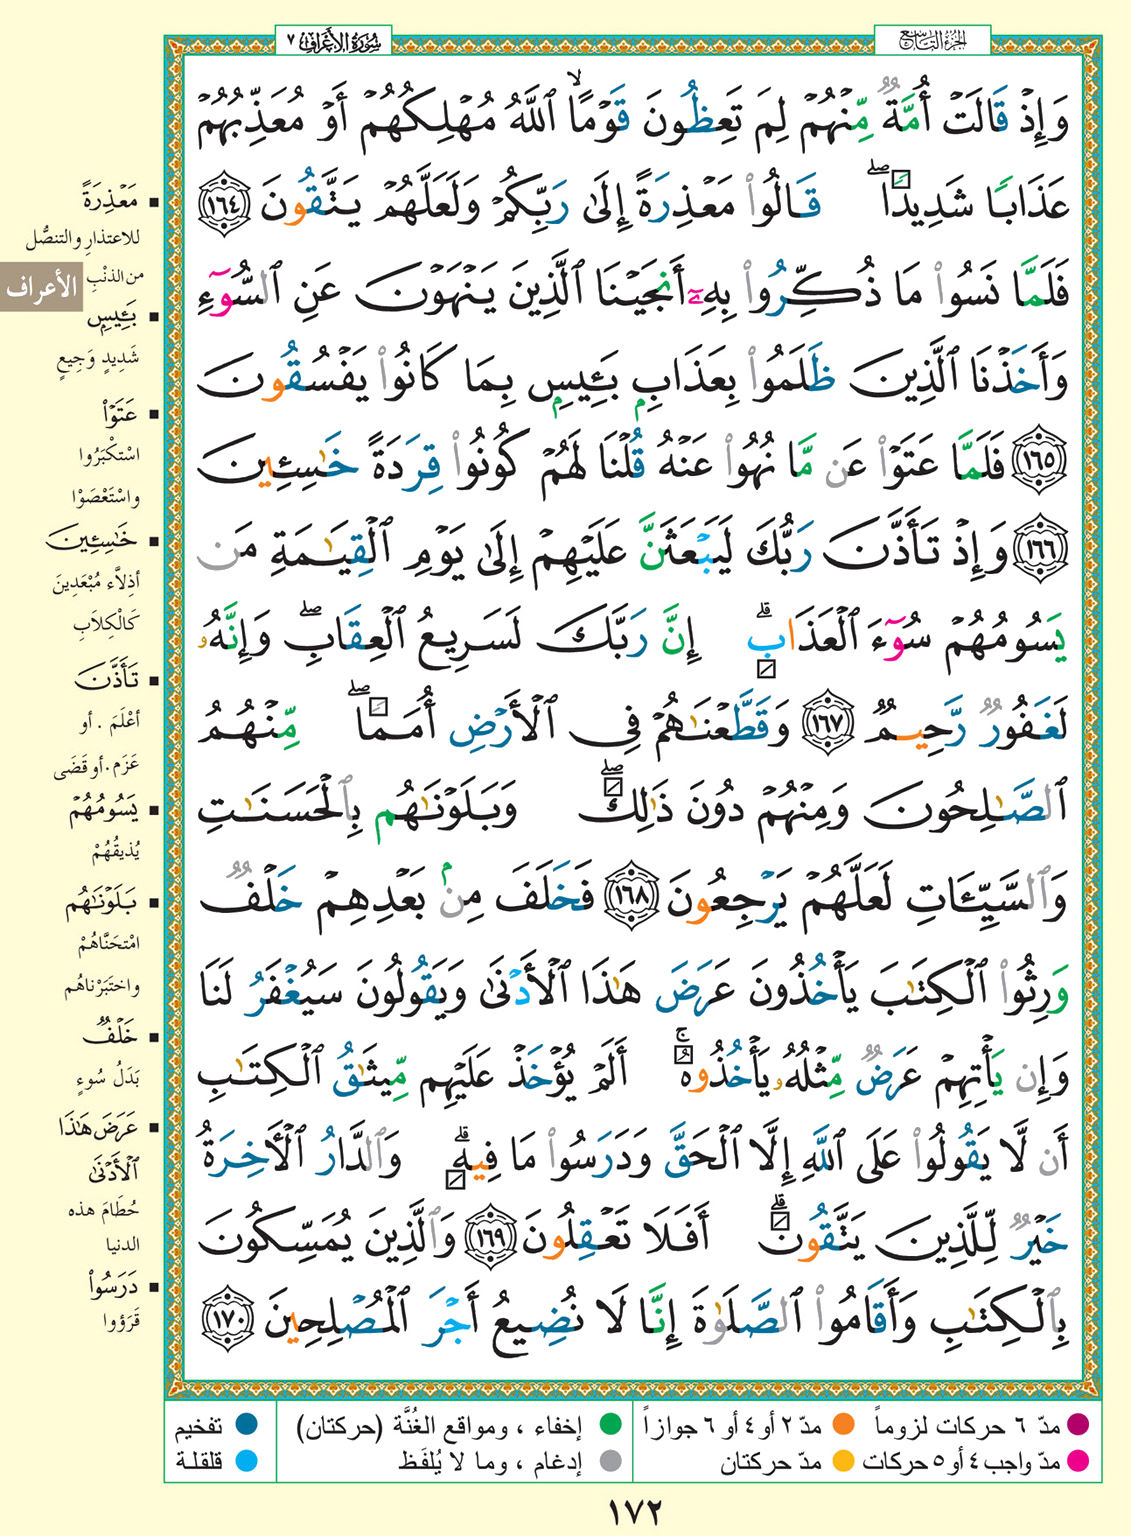 الجزء التاسع
سورة الأعراف ٧
وَإِذْ قَالَتْ أُمَّةٌ مِّنْهُمْ لِمَ تَعِظُونَ قَوْمًا ۙ ٱللَّهُ مُهْلِكُهُمْ أَوْ مُعَذِّبُهُمْ
عَذَابًا شَدِيدًا ۖ قَالُوا۟ مَعْذِرَةً إِلَىٰ رَبِّكُمْ وَلَعَلَّهُمْ يَتَّقُونَ ١٦٤
فَلَمَّا نَسُوا۟ مَا ذُكِّرُوا۟ بِهِۦٓ أَنجَيْنَا ٱلَّذِينَ يَنْهَوْنَ عَنِ ٱلسُّوٓءِ
وَأَخَذْنَا ٱلَّذِينَ ظَلَمُوا۟ بِعَذَابٍۭ بَـِٔيسٍۭ بِمَا كَانُوا۟ يَفْسُقُونَ
١٦٥ فَلَمَّا عَتَوْا۟ عَن مَّا نُهُوا۟ عَنْهُ قُلْنَا لَهُمْ كُونُوا۟ قِرَدَةً خَـٰسِـِٔينَ
١٦٦ وَإِذْ تَأَذَّنَ رَبُّكَ لَيَبْعَثَنَّ عَلَيْهِمْ إِلَىٰ يَوْمِ ٱلْقِيَـٰمَةِ مَن
يَسُومُهُمْ سُوٓءَ ٱلْعَذَابِ ۗ إِنَّ رَبَّكَ لَسَرِيعُ ٱلْعِقَابِ ۖ وَإِنَّهُۥ
لَغَفُورٌ رَّحِيمٌ ١٦٧ وَقَطَّعْنَـٰهُمْ فِى ٱلْأَرْضِ أُمَمًا ۖ مِّنْهُمُ
ٱلصَّـٰلِحُونَ وَمِنْهُمْ دُونَ ذَٰلِكَ ۖ وَبَلَوْنَـٰهُم بِٱلْحَسَنَـٰتِ
وَٱلسَّيِّـَٔاتِ لَعَلَّهُمْ يَرْجِعُونَ ١٦٨ فَخَلَفَ مِنۢ بَعْدِهِمْ خَلْفٌ
وَرِثُوا۟ ٱلْكِتَـٰبَ يَأْخُذُونَ عَرَضَ هَـٰذَا ٱلْأَدْنَىٰ وَيَقُولُونَ سَيُغْفَرُ لَنَا
وَإِن يَأْتِهِمْ عَرَضٌ مِّثْلُهُۥ يَأْخُذُوهُ ۚ أَلَمْ يُؤْخَذْ عَلَيْهِم مِّيثَـٰقُ ٱلْكِتَـٰبِ
أَن لَّا يَقُولُوا۟ عَلَى ٱللَّهِ إِلَّا ٱلْحَقَّ وَدَرَسُوا۟ مَا فِيهِ ۗ وَٱلدَّارُ ٱلْـَٔاخِرَةُ
خَيْرٌ لِّلَّذِينَ يَتَّقُونَ ۗ أَفَلَا تَعْقِلُونَ ١٦٩ وَٱلَّذِينَ يُمَسِّكُونَ
بِٱلْكِتَـٰبِ وَأَقَامُوا۟ ٱلصَّلَوٰةَ إِنَّا لَا نُضِيعُ أَجْرَ ٱلْمُصْلِحِينَ ١٧٠
▪ مَعْذِرَةً
للاعتذارِ والتنصُّل
من الذنْبِ
الأعراف
▪ بَـِٔيسٍ
شَدِيدٍ وَجِيعٍ
▪ عَتَوْا۟
اسْتكْبَرُوا
واسْتَعْصَوْا
▪ خَـٰسِـِٔينَ
أذِلاَّء مُبْعَدِينَ
كَالْكِلاَبِ
▪ تَأَذَّنَ
أعْلَمَ . أو
عَزَم . أو قَضَى
▪ يَسُومُهُمْ
يُذيقُهُمْ
▪ بَلَوْنَـٰهُم
امْتحَنَّاهُمْ
واختَبَرْناهُم
▪ خَلْفٌ
بَدَلُ سُوءٍ
▪ عَرَضَ هَـٰذَا
ٱلْأَدْنَىٰ
حُطَامَ هذه
الدنيا
▪ دَرَسُوا۟
قَرَؤوا
مدّ ٦ حركات لزوماً
مدّ ٢ أو ٤ أو ٦ جوازاً
إخفاء ، ومواقع الغُنَّة (حركتان)
تفخيم
مدّ واجب ٤ أو ٥ حركات
مدّ حركتان
إدغام ، وما لا يُلفَظ
قلقلة
١٧٢